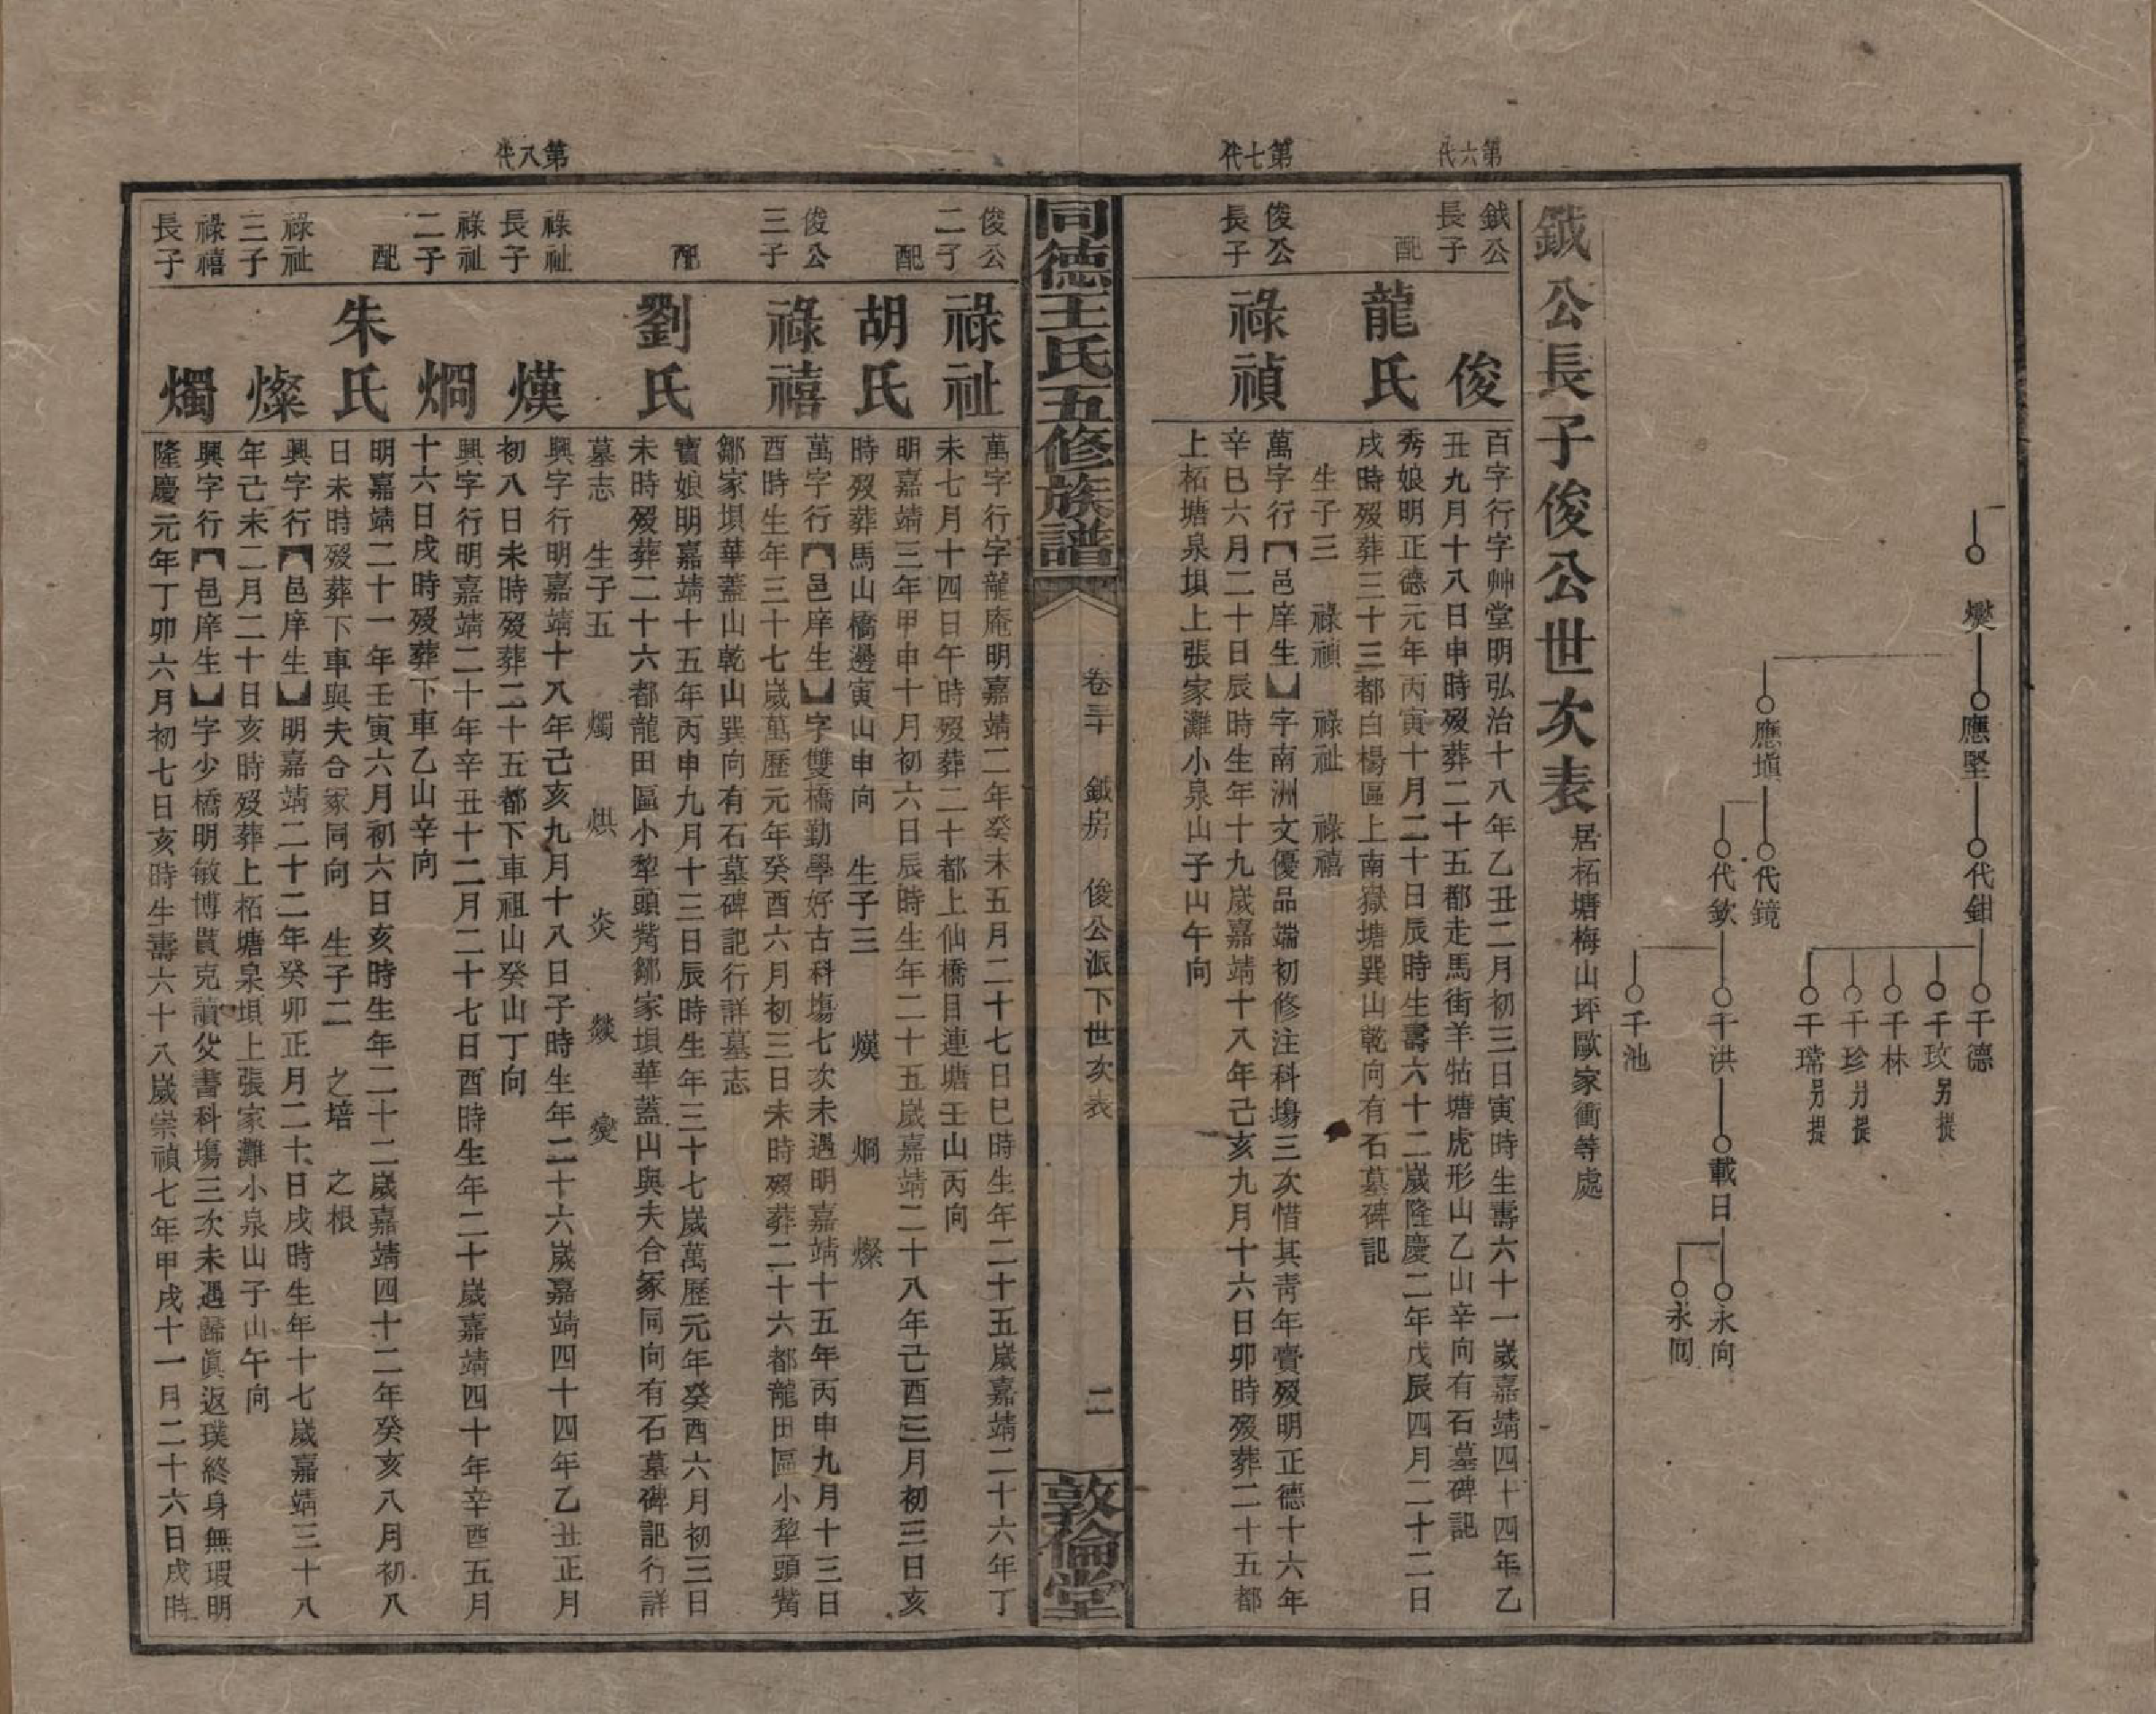 燮
應堅
代鉗
千德
千玫 另提
千林
千珍 另提
千瑞 另提
應塤
代鏡
代欽
千洪
千池
載日
永向
永囘
鉞公長子俊公世次表 居柘塘梅山坪歐家衝等處
第六代
鉞公長子 俊
百字行字帥堂明弘治十八年乙丑二月初三日寅時生壽六十一歲嘉靖四十四年乙
丑九月十八日申時歿葬二十五都走馬街羊牯塘虎形山乙山辛向有石墓碑記
配 龍氏
秀娘明正德元年丙寅十月二十日辰時生壽六十二歲隆慶二年戊辰四月二十二日
戌時歿葬三十三都白楊區上南嶽塘巽山乾向有石墓碑記
生子三 祿禎 祿祉 祿禧
第七代
俊公長子 祿禎
萬字行【邑庠生】字南洲文優品端初修注科塲三次惜其靑年賫歿明正德十六年
辛巳六月二十日辰時生年十九歲嘉靖十八年己亥九月十六日卯時歿葬二十五都
上柘塘泉垻上張家灘小泉山子山午向
同德王氏五修族譜
卷三十 鉞房 俊公派下世次表
二
敦倫堂
俊公二子 祿祉
萬字行字龍庵明嘉靖二年癸未五月二十七日巳時生年二十五歲嘉靖二十六年丁
未七月十四日午時歿葬二十都上仙橋目連塘壬山丙向
配 胡氏
明嘉靖三年甲申十月初六日辰時生年二十五歲嘉靖二十八年己酉三月初三日亥
時歿葬馬山橋邊寅山申向 生子三 熯 烱 燦
俊公三子 祿禧
萬字行【邑庠生】字雙橋勤學好古科塲七次未遇明嘉靖十五年丙申九月十三日
酉時生年三十七歲萬歷元年癸酉六月初三日未時歿葬二十六都龍田區小犂頭觜
鄒家垻華蓋山乾山巽向有石墓碑記行詳墓志
配 劉氏
寳娘明嘉靖十五年丙申九月十三日辰時生年三十七歲萬歷元年癸酉六月初三日
未時歿葬二十六都龍田區小犂頭觜鄒家垻華蓋山與夫合冢同向有石墓碑記行詳
墓志 生子五 燭 烘 炎 燚 燮
第八代
祿祉長子 熯
興字行明嘉靖十八年己亥九月十八日子時生年二十六歲嘉靖四十四年乙丑正月
初八日未時歿葬二十五都下車祖山癸山丁向
祿祉二子 烱
興字行明嘉靖二十年辛丑十二月二十七日酉時生年二十歲嘉靖四十年辛酉五月
十六日戌時歿葬下車乙山辛向
配 朱氏
明嘉靖二十一年壬寅六月初六日亥時生年二十二歲嘉靖四十二年癸亥八月初八
日未時歿葬下車與夫合冢同向 生子二 之培 之根
祿祉三子 燦
興字行【邑庠生】明嘉靖二十二年癸卯正月二十日戌時生年十七歲嘉靖三十八
年己未二月二十日亥時歿葬上柘塘泉垻上張家灘小泉山子山午向
祿禧長子 燭
興字行【邑庠生】字少橋明敏博貫克讀父書科塲三次未遇歸眞返璞終身無瑕明
隆慶元年丁卯六月初七日亥時生壽六十八歲崇禎七年甲戌十一月二十六日戌時